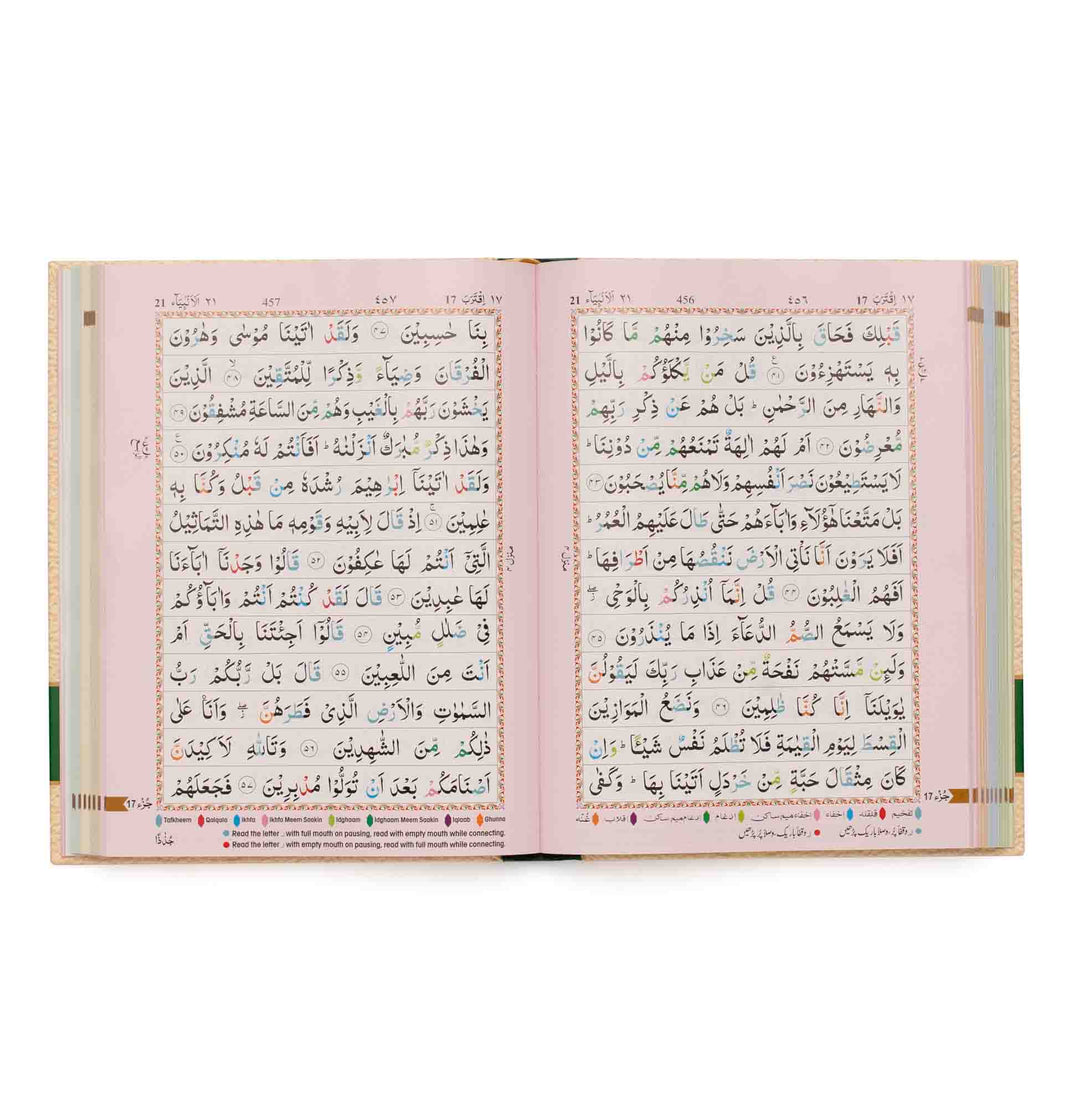 ١٧ اِقْتَرَبَ 17 ٤٥٦ 456 ٢١ اَلْاَنْۢبِيَآء 21
قَبْلِكَ فَحَاقَ بِالَّذِيْنَ سَخِرُوْا مِنْهُمْ مَّا كَانُوْا
بِهٖ يَسْتَهْزِءُوْنَ ۝٤١ قُلْ مَنْ يَّكْلَؤُكُمْ بِالَّيْلِ
وَالنَّهَارِ مِنَ الرَّحْمٰنِ ؕ بَلْ هُمْ عَنْ ذِكْرِ رَبِّهِمْ
مُّعْرِضُوْنَ ۝٤٢ اَمْ لَهُمْ اٰلِهَةٌ تَمْنَعُهُمْ مِّنْ دُوْنِنَا ؕ
لَا يَسْتَطِيْعُوْنَ نَصْرَ اَنْفُسِهِمْ وَلَا هُمْ مِّنَّا يُصْحَبُوْنَ ۝٤٣
بَلْ مَتَّعْنَا هٰۤؤُلَآءِ وَاٰبَآءَهُمْ حَتّٰى طَالَ عَلَيْهِمُ الْعُمُرُ ؕ
اَفَلَا يَرَوْنَ اَنَّا نَاْتِى الْاَرْضَ نَنْقُصُهَا مِنْ اَطْرَافِهَا ؕ
اَفَهُمُ الْغٰلِبُوْنَ ۝٤٤ قُلْ اِنَّمَاۤ اُنْذِرُكُمْ بِالْوَحْىِ ۖ
وَلَا يَسْمَعُ الصُّمُّ الدُّعَآءَ اِذَا مَا يُنْذَرُوْنَ ۝٤٥
وَلَئِنْ مَّسَّتْهُمْ نَفْحَةٌ مِّنْ عَذَابِ رَبِّكَ لَيَقُوْلُنَّ
يٰوَيْلَنَاۤ اِنَّا كُنَّا ظٰلِمِيْنَ ۝٤٦ وَنَضَعُ الْمَوَازِيْنَ
الْقِسْطَ لِيَوْمِ الْقِيٰمَةِ فَلَا تُظْلَمُ نَفْسٌ شَيْئًا ؕ وَاِنْ
كَانَ مِثْقَالَ حَبَّةٍ مِّنْ خَرْدَلٍ اَتَيْنَا بِهَا ؕ وَكَفٰى
جُزْء 17
تفخیم قلقلہ اخفاء اخفاء میم ساکن ادغام ادغام میم ساکن اقلاب غُنّہ
١٧ اِقْتَرَبَ 17 ٤٥٧ 457 ٢١ اَلْاَنْۢبِيَآء 21
بِنَا حٰسِبِيْنَ ۝٤٧ وَلَقَدْ اٰتَيْنَا مُوْسٰى وَهٰرُوْنَ
الْفُرْقَانَ وَضِيَآءً وَّذِكْرًا لِّلْمُتَّقِيْنَ ۝٤٨ الَّذِيْنَ
يَخْشَوْنَ رَبَّهُمْ بِالْغَيْبِ وَهُمْ مِّنَ السَّاعَةِ مُشْفِقُوْنَ ۝٤٩
وَهٰذَا ذِكْرٌ مُّبٰرَكٌ اَنْزَلْنٰهُ ؕ اَفَاَنْتُمْ لَهٗ مُنْكِرُوْنَ ۝٥٠
وَلَقَدْ اٰتَيْنَاۤ اِبْرٰهِيْمَ رُشْدَهٗ مِنْ قَبْلُ وَكُنَّا بِهٖ
عٰلِمِيْنَ ۝٥١ اِذْ قَالَ لِاَبِيْهِ وَقَوْمِهٖ مَا هٰذِهِ التَّمَاثِيْلُ
الَّتِىْۤ اَنْتُمْ لَهَا عٰكِفُوْنَ ۝٥٢ قَالُوْا وَجَدْنَاۤ اٰبَآءَنَا
لَهَا عٰبِدِيْنَ ۝٥٣ قَالَ لَقَدْ كُنْتُمْ اَنْتُمْ وَاٰبَآؤُكُمْ
فِىْ ضَلٰلٍ مُّبِيْنٍ ۝٥٤ قَالُوْۤا اَجِئْتَنَا بِالْحَقِّ اَمْ
اَنْتَ مِنَ اللّٰعِبِيْنَ ۝٥٥ قَالَ بَلْ رَّبُّكُمْ رَبُّ
السَّمٰوٰتِ وَالْاَرْضِ الَّذِىْ فَطَرَهُنَّ ۖ وَاَنَا عَلٰى
ذٰلِكُمْ مِّنَ الشّٰهِدِيْنَ ۝٥٦ وَتَاللّٰهِ لَاَكِيْدَنَّ
اَصْنَامَكُمْ بَعْدَ اَنْ تُوَلُّوْا مُدْبِرِيْنَ ۝٥٧ فَجَعَلَهُمْ
17 جُزْء
Tafkheem Qalqala Ikhfa Ikhfa Meem Saakin Idghaam Idghaam Meem Saakin Iqlaab Ghunna
Read the letter ر with full mouth on pausing, read with empty mouth while connecting.
Read the letter ر with empty mouth on pausing, read with full mouth while connecting.
جُذٰذًا